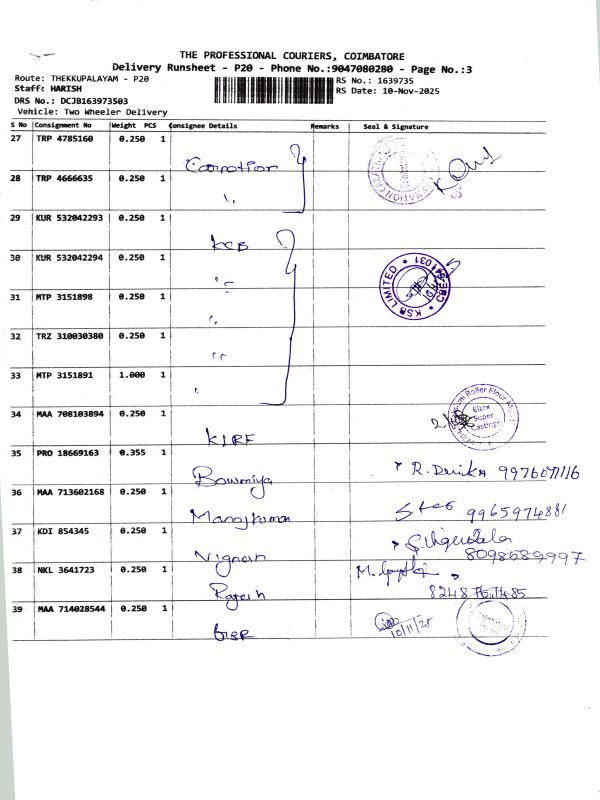 THE PROFESSIONAL COURIERS, COIMBATORE
Delivery Runsheet - P20 - Phone No.:9047080280 - Page No.:3
Route: THEKKUPALAYAM - P20
Staff: HARISH
DRS No.: DCJB163973503
Vehicle: Two Wheeler Delivery
RS No.: 1639735
RS Date: 10-Nov-2025
S No Consignment No Weight PCS Consignee Details Remarks Seal & Signature
27 TRP 4785160 0.250 1
28 TRP 4666635 0.250 1 "
29 KUR 532042293 0.250 1
30 KUR 532042294 0.250 1 "
KSB LIMITED
31 MTP 3151898 0.250 1 "
32 TRZ 310030380 0.250 1 "
33 MTP 3151891 1.000 1 "
34 MAA 708103894 0.250 1
Roller Flour
Super
Castings
35 PRO 18669163 0.355 1 Bowmiya
36 MAA 713602168 0.250 1 Manojkumar 9965974881
37 KDI 854345 0.250 1 Vignesh 8098589997
38 NKL 3641723 0.250 1 Rajesh
39 MAA 714028544 0.250 1 10/11/25